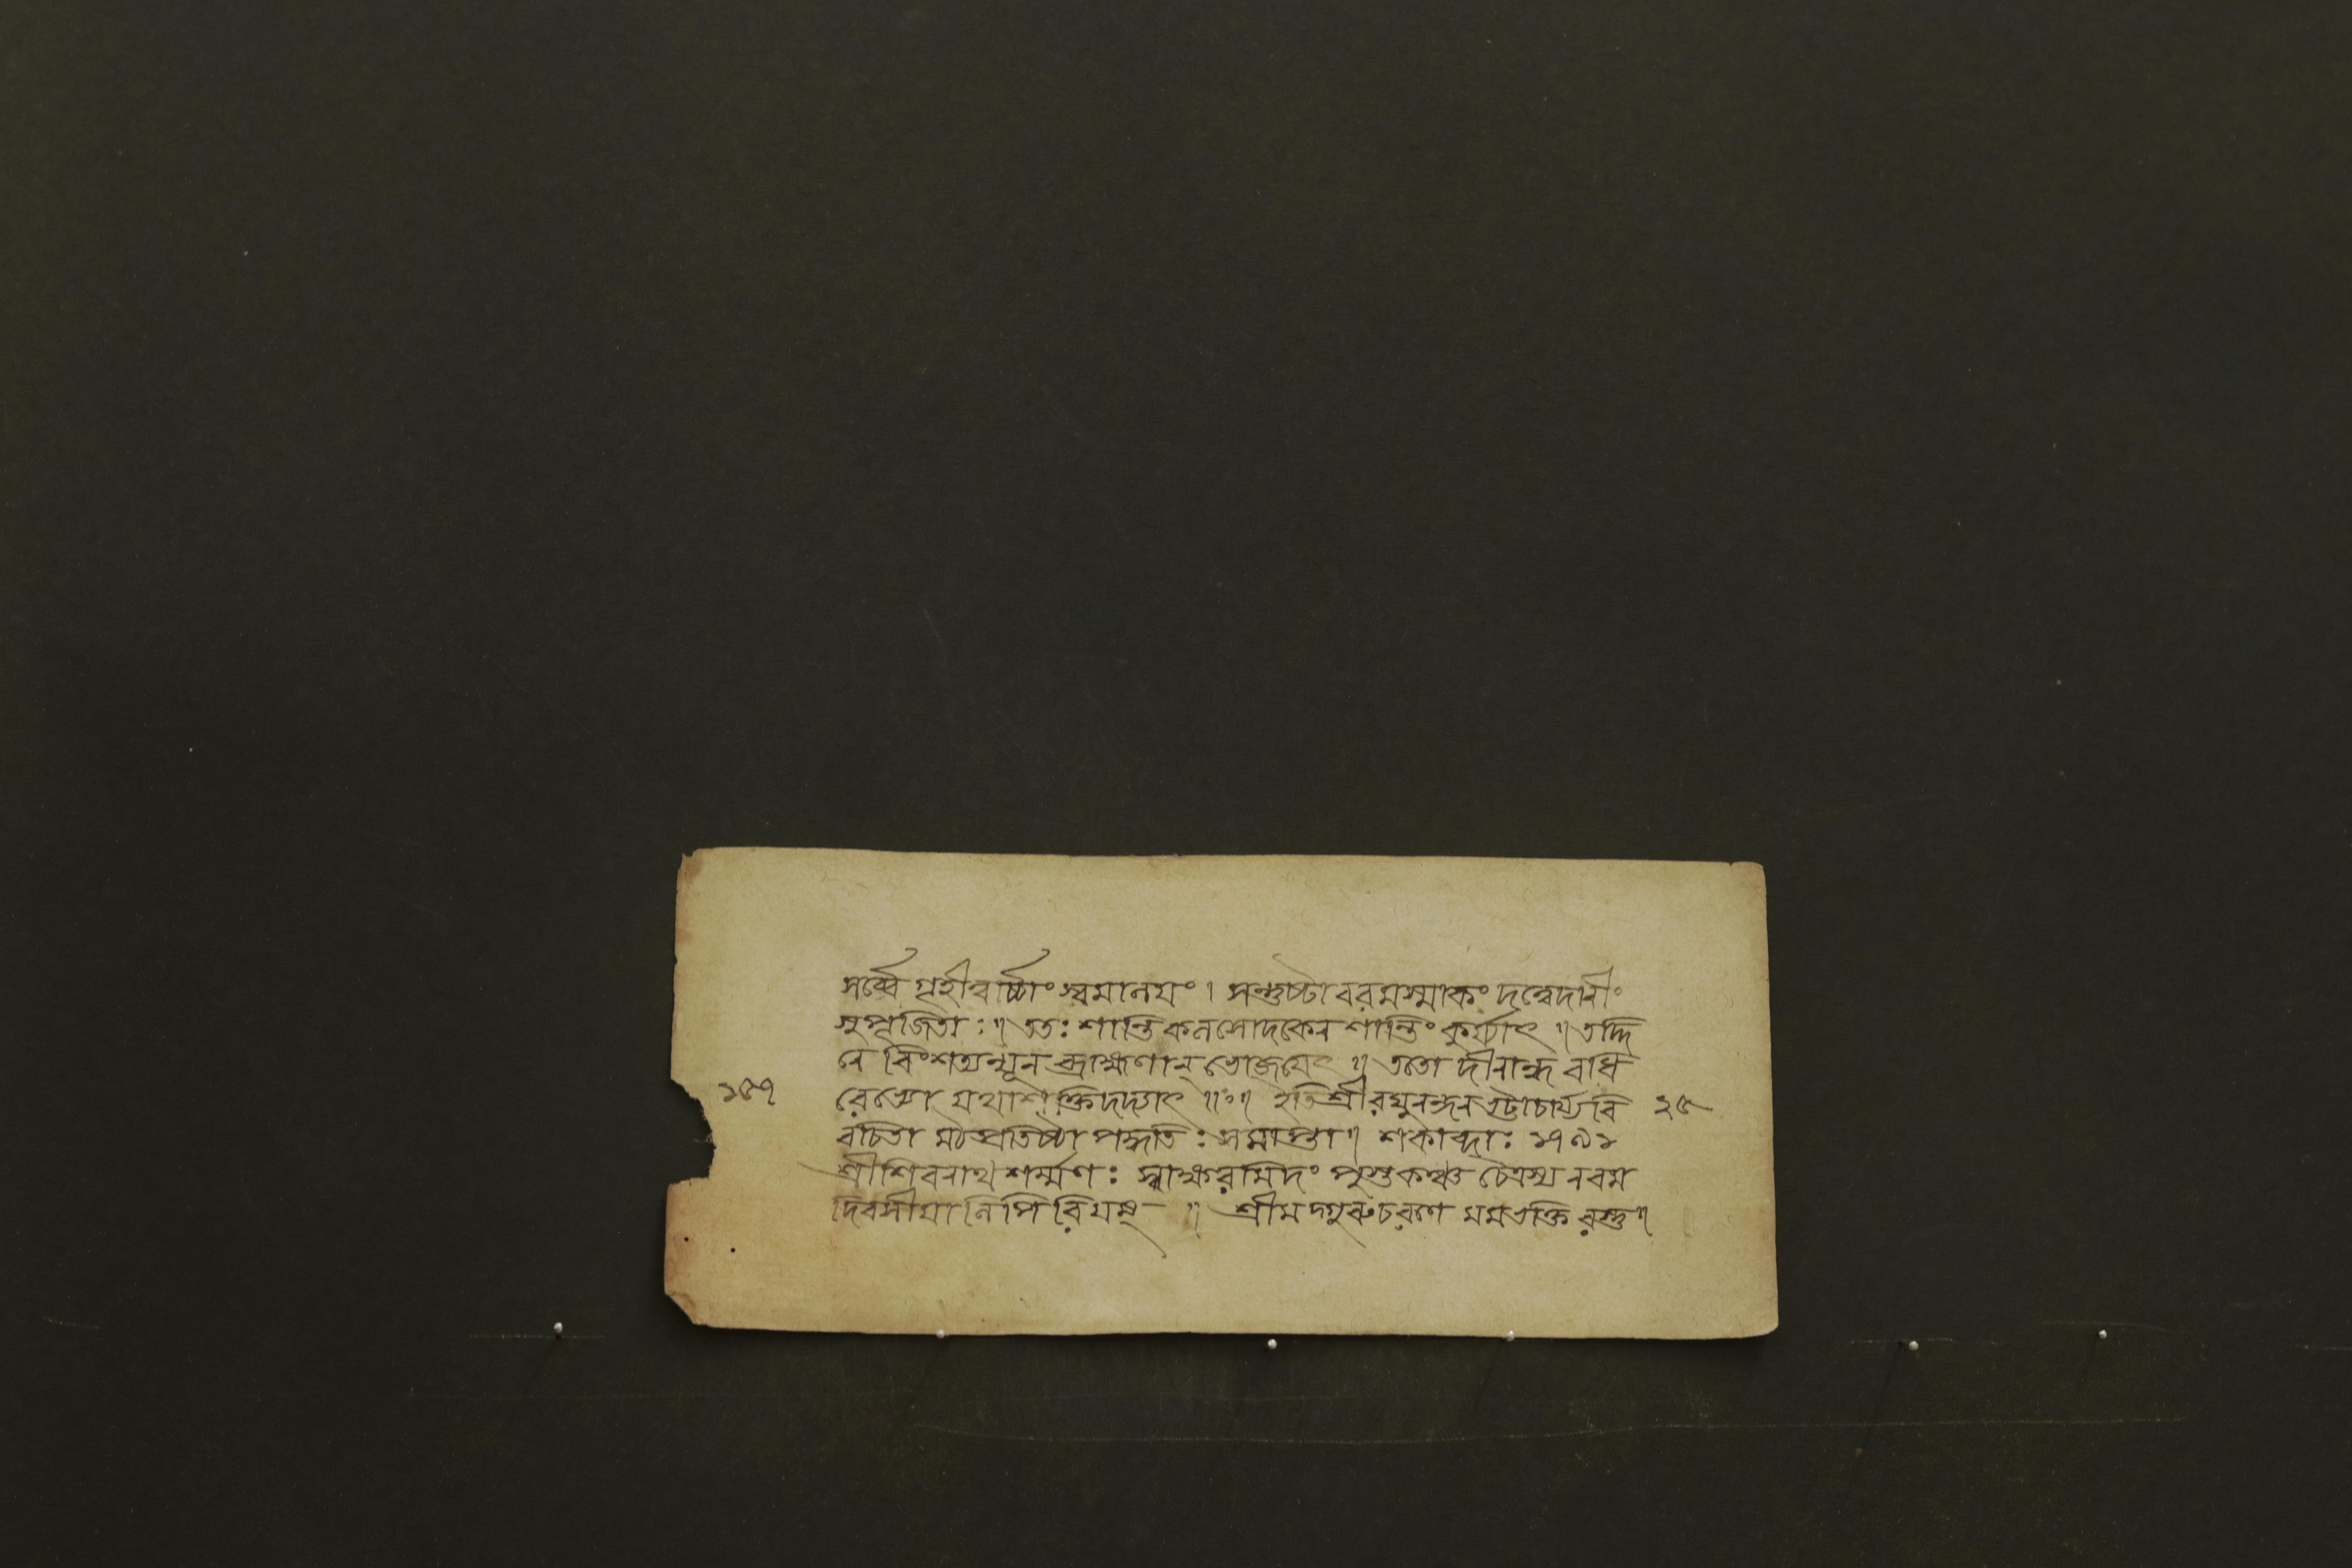 সর্ব্বে গৃহীত্বার্চ্চাং স্বমালয়ং। সন্তুষ্টা বরমস্মাকং দত্বেদানীং
সুপূজিতাঃ॥ ততঃ শান্তিকলসোদকেন শান্তিং কুর্য্যাৎ॥ তদ্দি
নে বিংশত্যন্যূন ব্রাহ্মণান্ ভোজয়েৎ॥ ততো দীনান্ধ বধি
১৫৭ রেভ্যো যথাশক্তি দদ্যাৎ॥ঃ॥ ইতি শ্রীরঘুনন্দন ভট্টাচার্য্য বি ২৫
রচিতা মঠপ্রতিষ্ঠা পদ্ধতিঃ সমাপ্তা॥ শকাব্দাঃ ১৭৯১
শ্রীশিবনাথ শর্ম্মণঃ স্বাক্ষরমিদং পুস্তকঞ্চ চৈত্রস্য নবম
দিবসীয়া লিপিরিয়ম্ ॥ শ্রীমদ্গুরুচরণে মম ভক্তিরস্তু॥